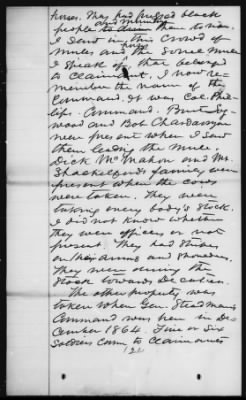 horses. They had pressed black
and mounted
people to drive them to him.
I send in this crowd of
mules and the Sorrel Mule
I speak of that belonged
to claimant. I now re-
member the name of the
Command. It was Col. Phil-
lips Command.
wood and Bob
were present when I saw
them leading the mule.
Dick McMahon and Mr.
Shackelford's family were
present when the cows
were taken. They were
taking every body's stock.
I did not know whether
they were officers or not
present. They had stripes
on their arms and shoulders.
They were driving the
stock towards Decatur.
The other property was
taken when Gen. Steadman's
Command was here in De-
cember 1864. Five or Six
Soldiers came to claimants
2